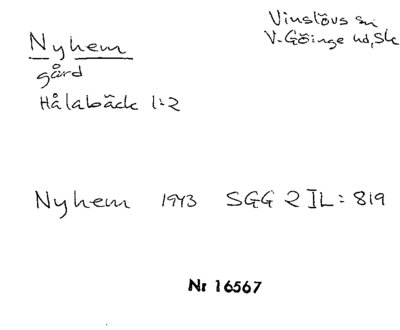 Nyhem
gård
Hålabäck 1:2
Vinslövs sn
V-Göinge hd, Sk
Nyhem 1943 SGG 2 IL: 819
Nr 16567